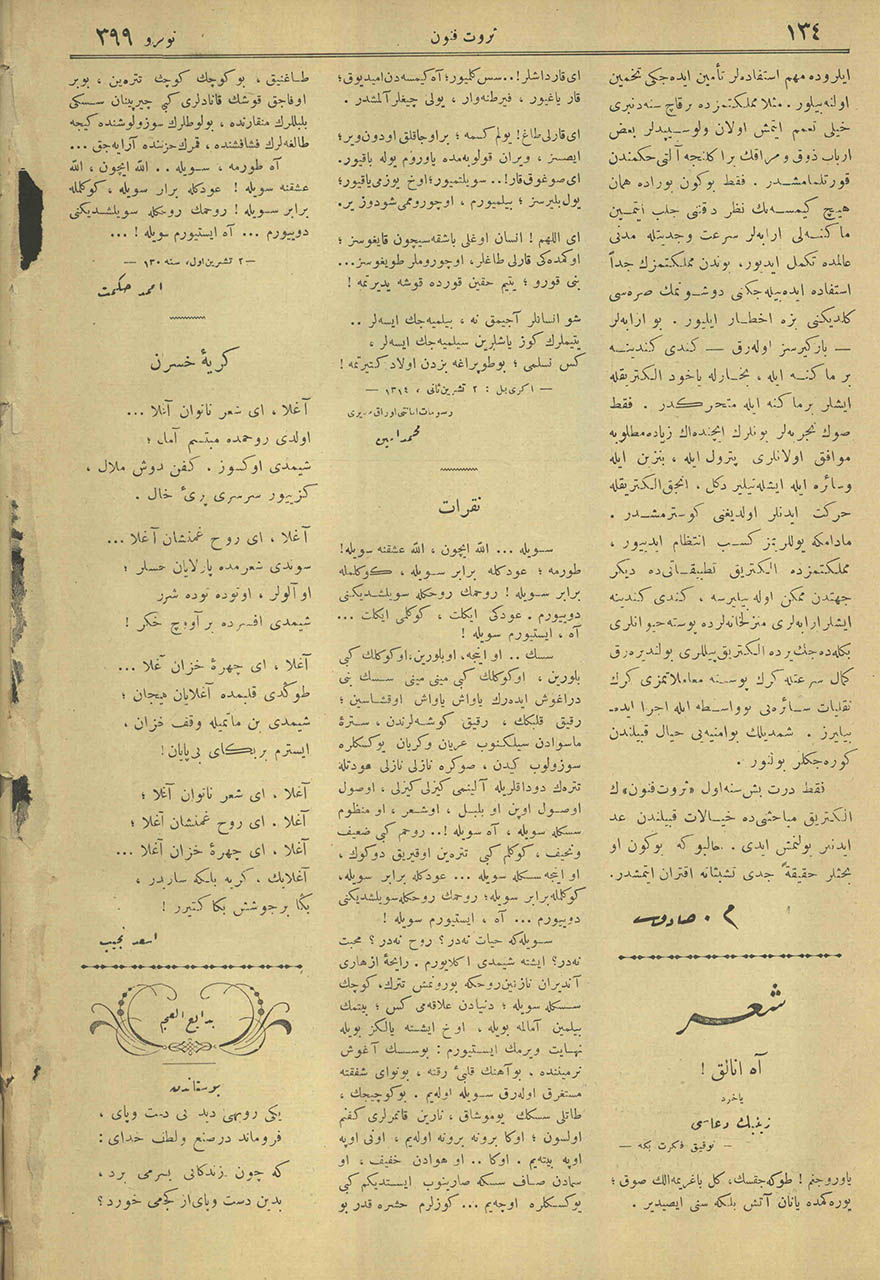 ١٣٤
ثروت فنون
نومرو ٣٩٩
ایلروده مهم استفاده‌لر تأمین ایده‌جکی تخمین
اولنه‌بیلور . مثلا مملکتمزده برقاچ سنه‌دنبری
خیلی تعمم ایتمش اولان ولوسپیدلر بعض
ارباب ذوق و مراقك براکلنجه آلتی حکمندن
قورتلمامشدر . فقط بوکون بوراده همان
هیچ کیمسه‌نك نظر دقتنی جلب ایتمین
ماکنه‌لی ارابه‌لر سرعت وجدیتله مدنی
عالمده تکمل ایدیور، بوندن مملکتمزك جداً
استفاده ایده‌بیله‌جکنی دوشونمك صره‌سی
کلدیکنی بزه اخطار ایلیور . بو ارابه‌لر
— بارکیرسز اوله‌رق — کندی کندینه
بر ماکنه ایله ، بخارله یاخود الکتریقله
ایشلر برماکنه ایله متحرکدر . فقط
صوك تجربه‌لر بونلرك ایچنده‌اك زیاده مطلوبه
موافق اولانلری پترول ایله ، بنزین ایله
وسائره ایله ایشله‌تیلیر دکل ، انجق الکتریقله
حرکت ایدنلر اولدیغنی کوسترمشدر .
مادامکه یوللریمز کسب انتظام ایدییور ،
مملکتمزده الکتریق تطبیقاتی‌ده دیکر
جهتدن ممکن اوله‌بیلیرسه ، کندی کندینه
ایشلر ارابه‌لری منزلخانه‌لرده پوسته حیوانلری
بکله‌ده‌جك یرده الکتریق پیللری بولندیره‌رق
کمال سرعتله کرك پوسته معاملاتمزی کرك
نقلیات سائره‌یی بوواسطه ایله اجرا ایده‌-
بیلیرز . شمدیلك بوامنیه‌یی خیال قبیلندن
کوره‌جکلر بولنور .
فقط درت بش سنه‌اول «ثروت‌فنون»ك
الکتریق مباحثی‌ده خیالات قبیلندن عد
ایدنلر بولنمش ایدی . حالبوکه بوکون او
بحثلر حقیقةً جدی تشبثاته اقتران ایتمشدر.
م . صادق
شعر
آه انالق !
یاخود
زینبك دعاسی
— توفیق فکرت بکه —
یاوروجغم ! طوکه‌جقسك، کل باغریمه‌الك صوق ؛
یوره‌کمده یانان آتش بلکه سنی ایصیدیر .
ای قارداشلر !.. سس کلمیور؛ آه کیمسه‌دن امید یوق؛
قار یاغیور ، فیرطنه‌وار ، یولی چیغلر آلمشدر.
ای قارلی طاغ! یولم کسمه ؛ براوجاقلق اودون ویر؛
ایصسز ، ویران قولوبه‌مده یاوروم یوله باقیور.
ای صوغوق قار!.. سویلتمیور؛ اوخ یوزمی یاقیور؛
یول بلیرسز ؛ بیلمیورم ، اوچورومی شودوز یر.
ای اللهم ! انسان اوغلی باشقه‌سیچون قایغوسز ؛
اوکمده‌کی قارلی طاغلر، اوچوروملر طویغوسز...
بنی قورو ؛ یتیم حقین قورده قوشه یدیرتمه !
شو انسانلر آجیمق نه ، بیلمیه‌جك ایسه‌لر ..
یتیملرك کوز یاشلرین سیلمیه‌جك ایسه‌لر ،
کس نسلمی ؛ بوطوپراغه بزدن اولاد کتیرتمه !
— اکری‌بل : ٢ تشرین‌ثانی ، ١٣١٤ —
رسومات امانتی اوراق مدیری
محمد امین
نقرات
سویله ... الله ایچون ، الله عشقنه سویله!
طورمه ؛ عودکله برابر سویله ، کوکلمله
برابر سویله ! روحمك روحکله سویلشدیکنی
دویییورم . عودکی ایکلت ، کوکلمی ایکلت ...
آه ، ایستیورم سویله !
سسك .. او اینجه، اوبلورین، اوکوکلك کبی
بلورین ، اوکوکلك کبی مینی مینی سسك بنی
دراغوش ایده‌رك یاواش یاواش اوقشاسین ؛
رقیق قلبکك ، رقیق کوشه‌لرندن ، سترهٔ
ماسوادن سیلکنوب عریان وکریان یوکسکلره
سوزولوب کیدن ، صوکره نازلی نازلی عودتله
تتره‌ك دوداقلریله آلنیمی کیزلی کیزلی ، اوصول
اوصول اوپن او بلبل ، اوشعر ، او منظوم
سسکله سویله ، آه سویله !.. روحم کبی ضعیف
ونحیف ، کوکلم کبی تتره‌ین اوقیریق دوکوك ،
او اینجه سسکله سویله ... عودکله برابر سویله،
کوکلمله برابر سویله؛ روحمك روحکله سویلشدیکنی
دوییورم ... آه ، ایستیورم سویله !
سویله‌که حیات نه‌در ؟ روح نه‌در ؟ محبت
نه‌در؟ ایشته شیمدی اکلایورم . رایحهٔ ازهاری
آندیران نازنین روحکه بورونمش تتره‌ك، کوچك
سسکله سویله ؛ دنیادن علاقه‌می کس ؛ بیتمك
بیلمین آمالمه بویله ، اوخ ایشته یالکز بویله
نهایت ویرمك ایستیورم : بوسسك آغوش
نرمیننده ، بوآهنك قلبیٔ رقته ، بونوای شفقته
مستغرق اوله‌رق سویله اوله‌یم . بوکوچیجك ،
طاتلی سسکك یوموشاق ، نارین قاتمرلری کفنم
اولسون ؛ اوکا برونه برونه اوله‌یم ، اونی اوپه
اوپه بیته‌یم . اوکا .. او هوادن خفیف ، او
سمادن صاف سسکه صارینوب ایستدیکم کبی
یوکسکلره اوچه‌یم ... کوزلرم حشره قدر بو
طاغنیق ، بوکوچك کوچك تتره‌ین ، بوبر
اوفاجق قوشك قانادلری کبی چیرپینان سسکی
بلبللرك منقارنده ، بولوطلرك سوزولوشنده کیجه
طالغه‌لرك فشافشنده ، قمرك حزننده آرایه‌جق ...
آه طورمه ، سویله .. الله ایچون ، الله
عشقنه سویله ! عودکله برابر سویله ، کوکلمله
برابر سویله ! روحمك روحکله سویلشدیکنی
دوییورم ... آه ایستیورم سویله ! ...
— ٢ تشرین اول، سنه ١٣٠ —
احمد حکمت
کریهٔ خسران
آغلا ، ای شعر ناتوان آغلا ...
اولدی روحمده مبتسم آمال ؛
شیمدی اوکسوز ، کفن دوش ملال ،
کزییور سرسری پریٔ خیال .
آغلا ، ای روح غمنشان آغلا ...
سوندی شعرمده پارلایان حسلر ؛
او آلولر ، اوتوده توده شرر
شیمدی افسرده بر آووچ خکر !
آغلا ، ای چهرهٔ خزان آغلا ...
طوکدی قلبمده آغلایان هیجان ؛
شیمدی بن ماتمیله وقف خزان ،
ایسترم بر بکای بی‌پایان !
آغلا ، ای شعر ناتوان آغلا ؛
آغلا . ای روح غمنشان آغلا ؛
آغلا ، ای چهرهٔ خزان آغلا ...
آغلایك ، کریه بلکه ساربدر ،
بکا بر جوشش بکا کتیرر !
اسعد نجیب
بدایع العجم
بوستاندن
یکی روبهی دید بی دست وپای ،
فروماند در صنع ولطف خدای :
که چون زندکانی بسرمی برد ،
بدین دست وپای از کجامی خورد ؟